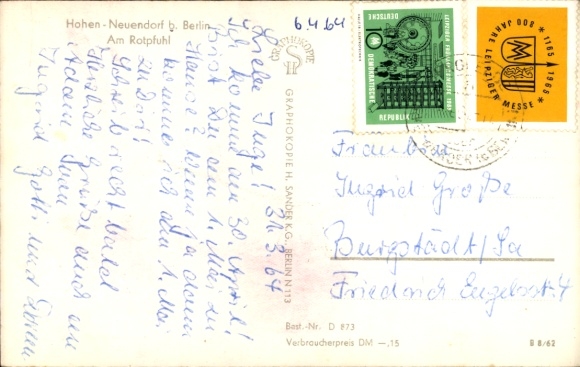 Hohen-Neuendorf b. Berlin
Am Rotpfuhl
6.4.64
GRAPHOKOPIE
GRAPHOKOPIE H. SANDER K.G., BERLIN N 113
31.3.64
Liebe Inge!
Ich komme am 30. April!
bist Du am 1. Mai zu
Hause? Wenn ja dann
komme ich am 1. Mai
zu Dir!
Schreib recht bald
Herzliche Grüße auch an
Jugend
DEUTSCHE
DEMOKRATISCHE
REPUBLIK
800 JAHRE LEIPZIGER MESSE
1165
1965
Ingrid Große
Burgstädt/Sa
Friedrich Engelsstr. 4
Best.-Nr. D 873
Verbraucherpreis DM —,15
B 8/62